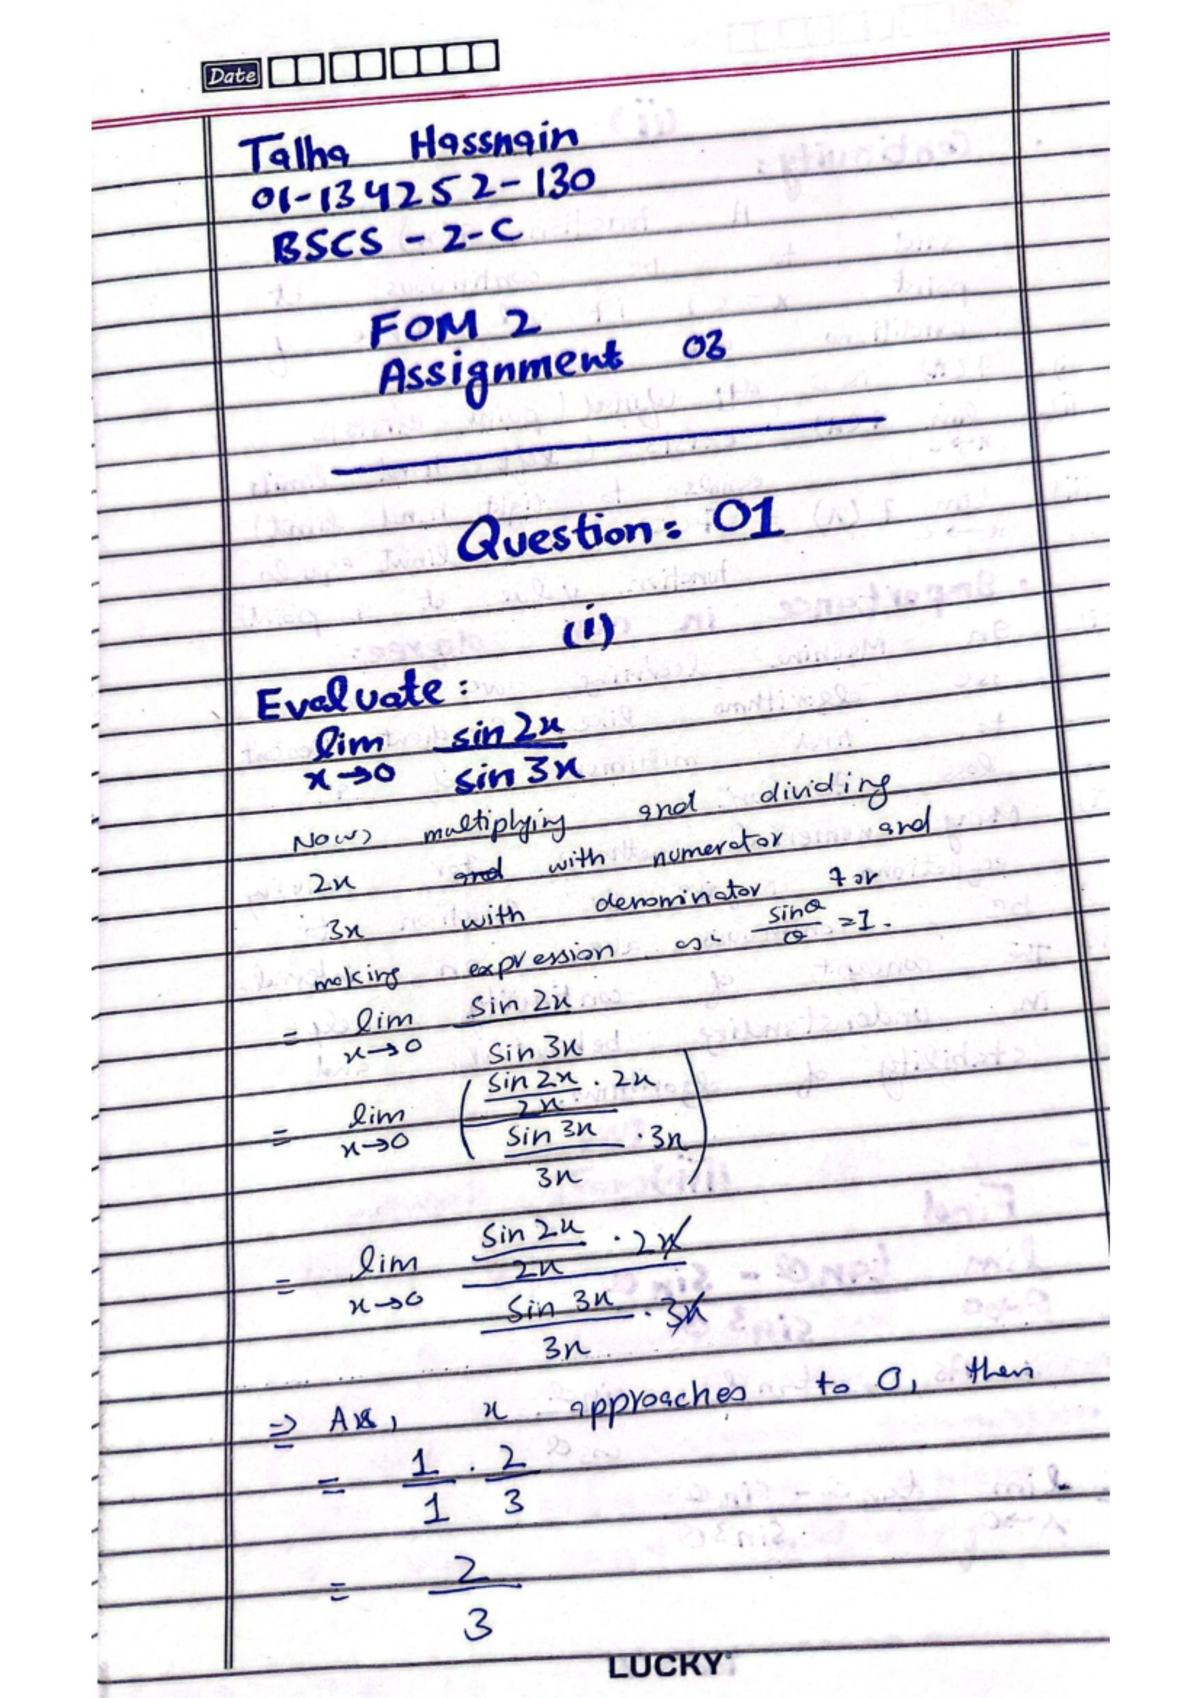 Date
Talha Hassnain
01-134252-130
BSCS - 2-C
FOM 2
Assignment 03
Question: 01
(i)
Evaluate:
lim sin 2x
x→0 sin 3x
Now, multiplying and dividing
2x and with numerator and
3x with denominator for
making expression as: sinθ/θ = 1.
= lim sin 2x
x→0 sin 3x
= lim ( sin 2x / 2x · 2x
x→0 sin 3x / 3x · 3x )
= lim sin 2x / 2x · 2x
x→0 sin 3x / 3x · 3x
⇒ As, x approaches to 0, then
= 1/1 · 2/3
= 2/3
LUCKY